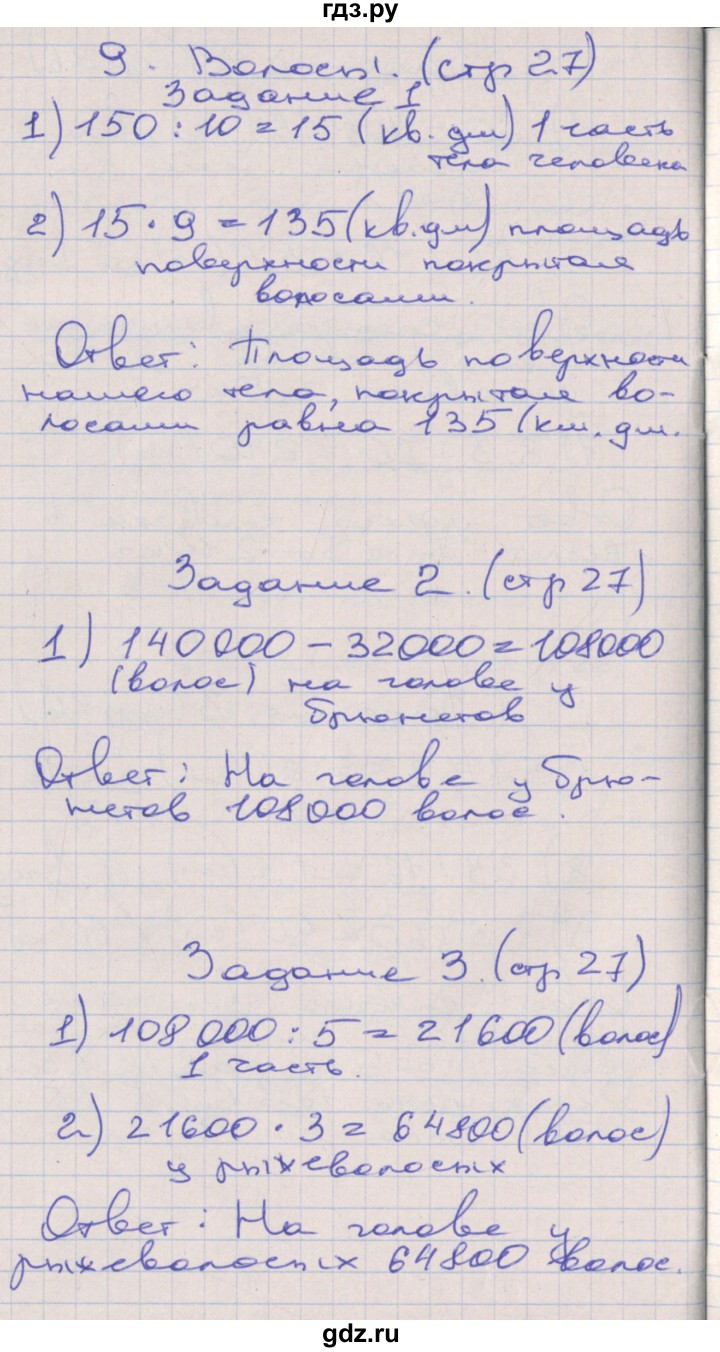 гдз.ру
9. Волосы. (стр 27)
Задание 1
1) 150 : 10 = 15 (кв. дм) 1 часть
тела человека
2) 15 · 9 = 135 (кв.дм) площадь
поверхности покрытая
волосами.
Ответ: Площадь поверхности
нашего тела, покрытая во-
лосами равна 135 (км. дм.
Задание 2. (стр 27)
1) 140000 - 32000 = 108000
(волос) на голове у
брюнетов
Ответ: На голове у брю-
нетов 108000 волос.
Задание 3. (стр 27)
1) 108 000 : 5 = 21600 (волос)
1 часть.
2) 21600 · 3 = 64800 (волос)
у рыжеволосых
Ответ: На голове у
рыжеволосых 64800 волос.
gdz.ru